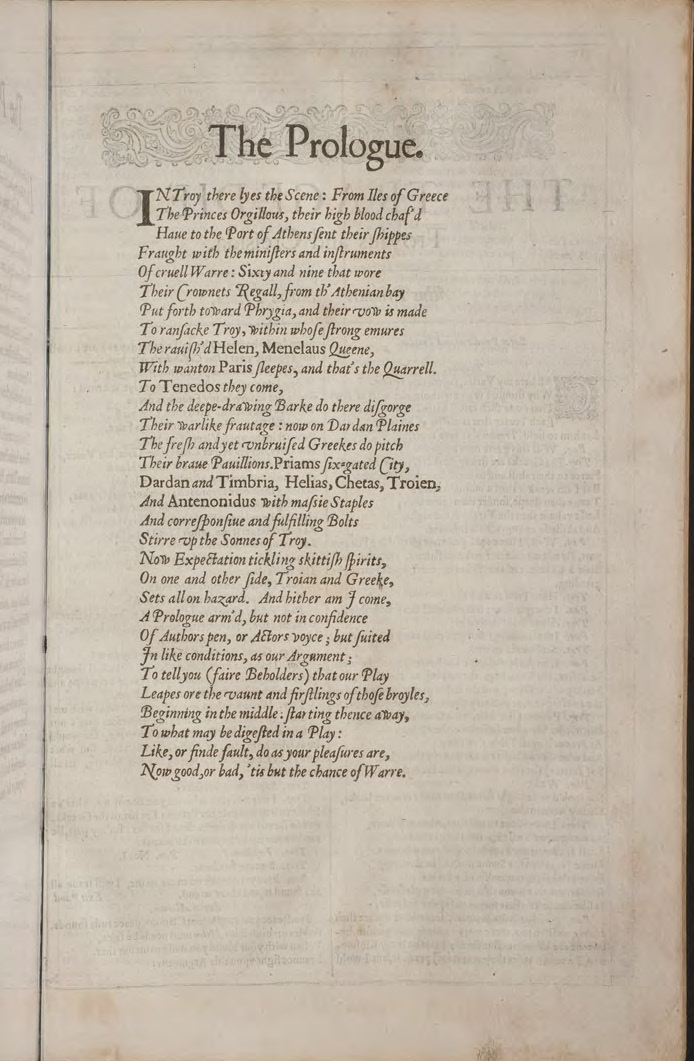 The Prologue.
IN Troy there lyes the Scene: From Iles of Greece
The Princes Orgillous, their high blood chaf'd
Haue to the Port of Athens ſent their ſhippes
Fraught with the miniſters and inſtruments
Of cruell Warre: Sixty and nine that wore
Their Crownets Regall, from th' Athenian bay
Put forth toward Phrygia, and their vow is made
To ranſacke Troy, within whoſe ſtrong emures
The rauiſh'd Helen, Menelaus Queene,
With wanton Paris ſleepes, and that's the Quarrell.
To Tenedos they come,
And the deepe-drawing Barke do there diſgorge
Their warlike frautage: now on Dardan Plaines
The freſh and yet vnbruiſed Greekes do pitch
Their braue Pauillions. Priams ſix-gated City,
Dardan and Timbria, Helias, Chetas, Troien,
And Antenonidus with maſsie Staples
And correſponſiue and fulfilling Bolts
Stirre vp the Sonnes of Troy.
Now Expectation tickling skittiſh ſpirits,
On one and other ſide, Troian and Greeke,
Sets all on hazard. And hither am I come,
A Prologue arm'd, but not in confidence
Of Authors pen, or Actors voyce; but ſuited
In like conditions, as our Argument;
To tell you (faire Beholders) that our Play
Leapes ore the vaunt and firſtlings of thoſe broyles,
Beginning in the middle: ſtarting thence away,
To what may be digeſted in a Play:
Like, or finde fault, do as your pleaſures are,
Now good, or bad, 'tis but the chance of Warre.